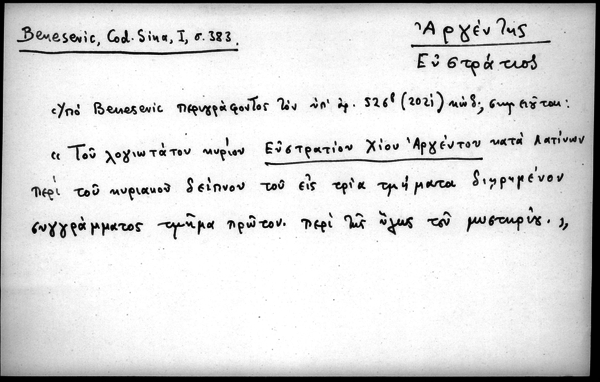 Benesevic, Cod. Sina, I, σ. 383.
Ἀργέντης
Εὐστράτιος
«Υπό Benesevic περιγράφοντος τον υπ' ἀρ. (2021) κώδ., σημειοῦται:
« Τοῦ λογιωτάτου κυρίου Εὐστρατίου Χίου Ἀργέντου κατά Λατίνων
περί τοῦ κυριακοῦ δείπνου τοῦ εις τρία τμήματα διῃρημένου
συγγράμματος τμῆμα πρῶτον. περί τῆς ὕλης τοῦ μυστηρίου. »